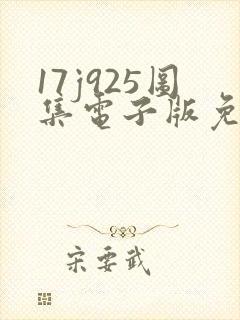 17j925图
集电子版免
宋要武